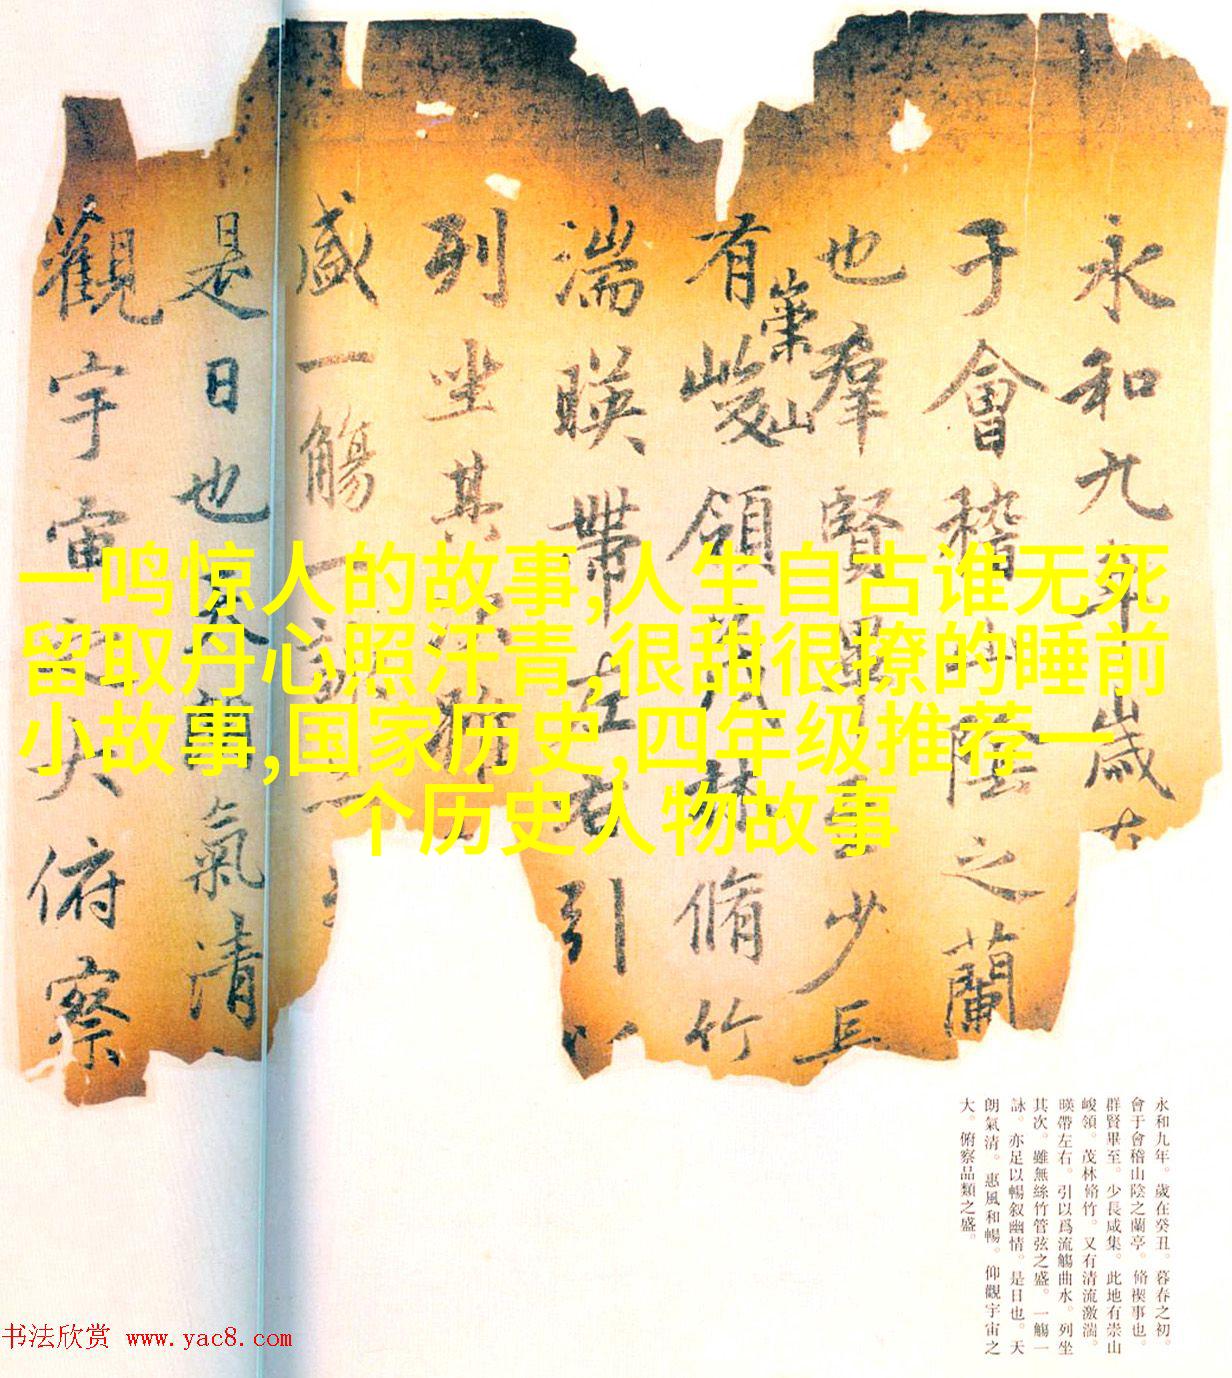 永和九年歲在
于會稽山陰之蘭
也羣賢畢至少長
有崇峻山領茂林脩竹
湍暎帶左右引以
列坐其次
盛一觴一詠
是日也天朗氣清
觀宇宙之大俯察
一鸣惊人的故事,人生自古谁无死
留取丹心照汗青,很甜很撩的睡前
小故事,国家历史,四年级推荐一
个历史人物故事
永和九年。歲在癸丑。暮春之初。
會于會稽山陰之蘭亭。脩禊事也。
群賢畢至。少長咸集。此地有崇山
峻領。茂林脩竹。又有清流激湍。
暎帶左右。引以爲流觴曲水。列坐
其次。雖無絲竹管弦之盛。一觴一
詠。亦足以暢叙幽情。是日也。天
朗氣清。惠風和暢。仰觀宇宙之
大。俯察品類之盛。
书法欣赏 www.yac8.com